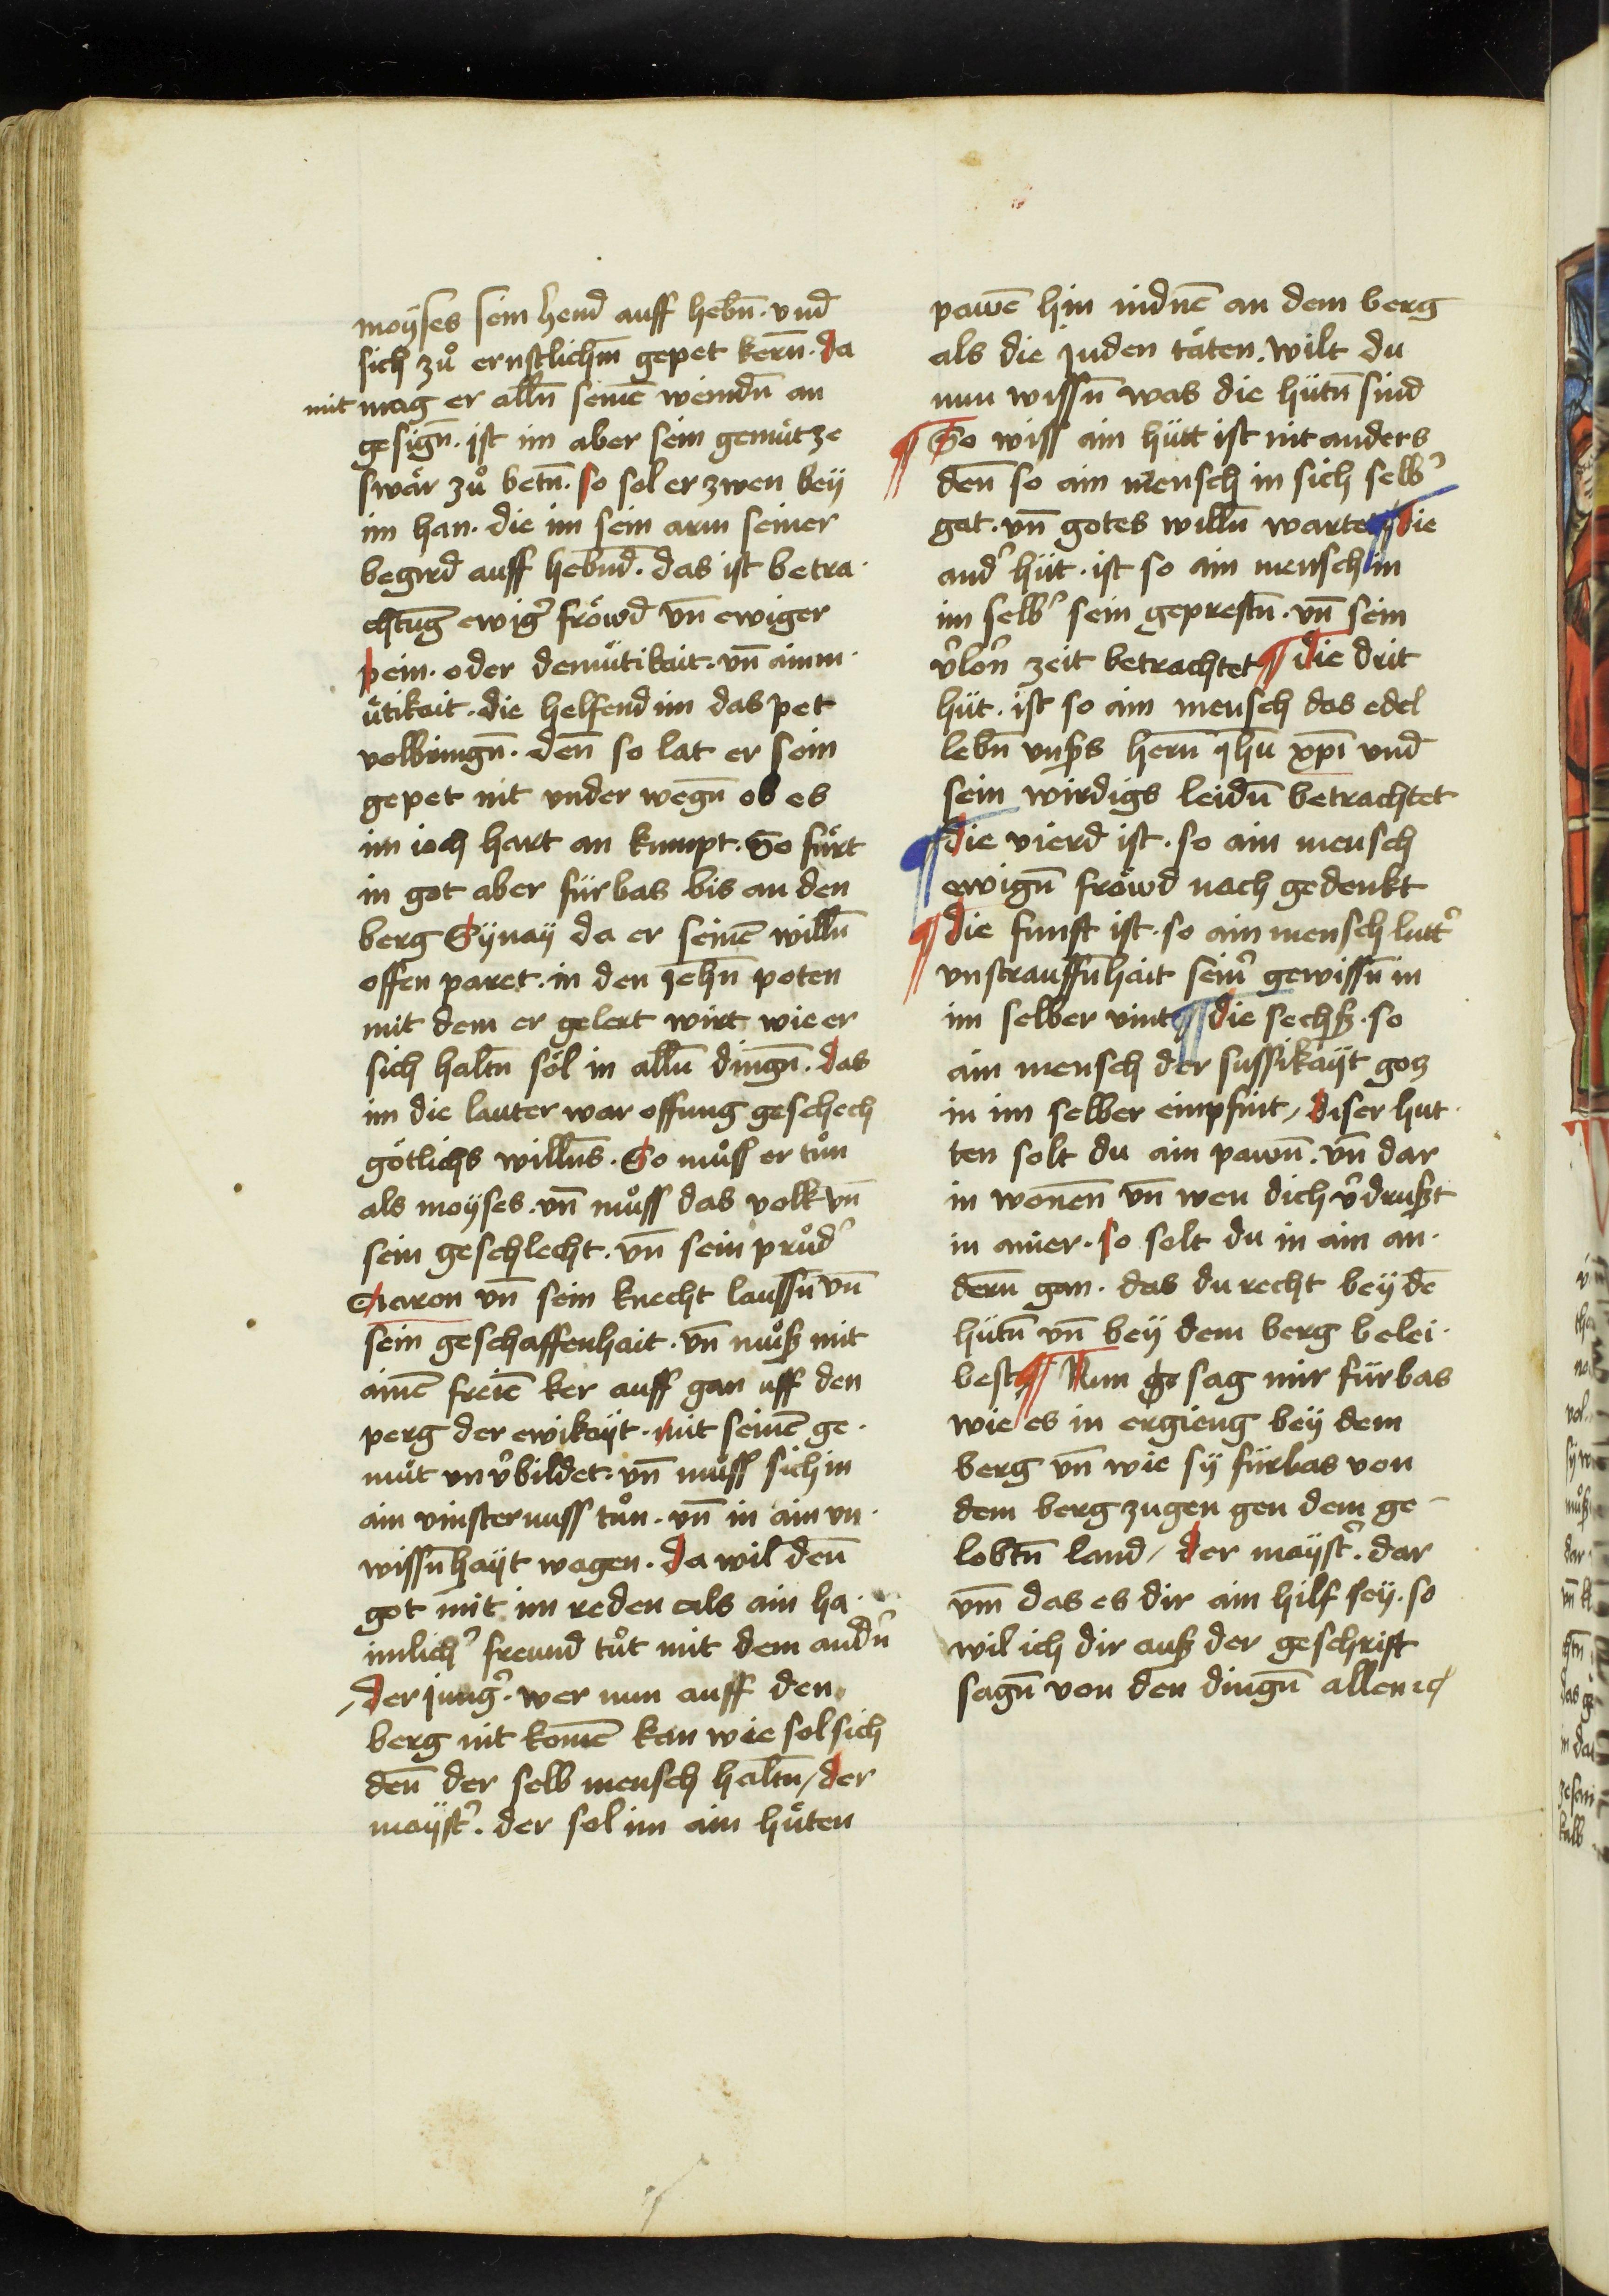 moÿses sein hend auff hebn̄ · vnd
sich zů ernstlichm̄ gepet kern̄ · da
mit mag er alln̄ seinē veindn̄ an
gesign̄ · ist im aber sein gemüt ze
swär zů betn̄ · so sol er zwen beÿ
im han · die im sein arm seiner
begird auff hebn̄d · das ist betra ·
chtūg ewig᷑ fröwd vn̄ ewiger
pein · oder demütikait · vn̄ ainm ·
ütikait · die helfend im das pet
volbringn̄ · den̄ so lat er sein
gepet nit vnder wegn̄ ob es
im ioch hart an kumpt · So fürt
in got aber fürbas bis an den
berg Sÿnaÿ da er seinē willn̄
offen paret · in den zehn̄ poten
mit dem er gelert wirt wie er
sich haltn̄ söl in alln̄ dingn̄ · das
im die lauter war offnung geschech
götlichs willn̄s · So můss er tůn
als moÿses · vn̄ můss das volk vn̄
sein geschlecht · vn̄ sein průd᷑
Aaron vn̄ sein knecht laussn̄ vn̄
sein geschaffenhait · vn̄ můß mit
ainē freiē ker auff gan uff den
perg der ewikaÿt · mit seinē ge ·
müt vn v᷑bildet · vn̄ můss sich in
ain vinsternuss tůn · vn̄ in ain vn ·
wissn̄haÿt wagen · da wil den̄
got mit im reden als ain ha ·
imlich᷑ freund tůt mit dem andn᷑
der jung᷑ · wer nun auff den
berg nit komē kan wie sol sich
den̄ der selb mensch haltn̄ / der
maÿst᷑ · der sol im ain hüten
pawē hin nidnē an dem berg
als die juden täten · wilt du
nun wissn̄ was die hütn̄ sind
¶ So wiss ain hütt ist nit anders
den̄ so ain mensch in sich selb᷑
gat · vn̄ gotes willn̄ wartet ¶ die
and᷑ hüt · ist so ain mensch in
im selb᷑ sein geprestn̄ · vn̄ sein
v᷑lorn̄ zeit betrachtet ¶ die drit
hüt · ist so ain mensch das edel
lebn̄ vnßs hern̄ jhū xp̄i vnd
sein wirdigs leidn̄ betrachtet
¶ die vierd ist · so ain mensch
ewign̄ fröwd nach gedenkt
¶ die funft ist · so ain mensch lutt᷑
vnstrauffn̄hait sein᷑ gewissn̄ in
im selber vint ¶ die sechß · so
ain mensch der sussikaÿt gotz
in im selber empfint / diser hut ·
ten solt du ain pawn̄ · vn̄ dar
in wonen̄ vn̄ wen dich v᷑drußt
in ainer · so solt du in ain an ·
dern̄ gan · das du recht beÿ dē
hütn̄ vn̄ beÿ dem berg belei ·
best ¶ Nun sag mir fürbas
wie es in ergieng beÿ dem
berg vn̄ wie sÿ fürbas von
dem berg zugen gen dem ge -
lobtn̄ land / der maÿst᷑ · dar
vm̄ das es dir ain hilf seÿ · so
wil ich dir auß der geschrift
sagn̄ von den dingn̄ allen